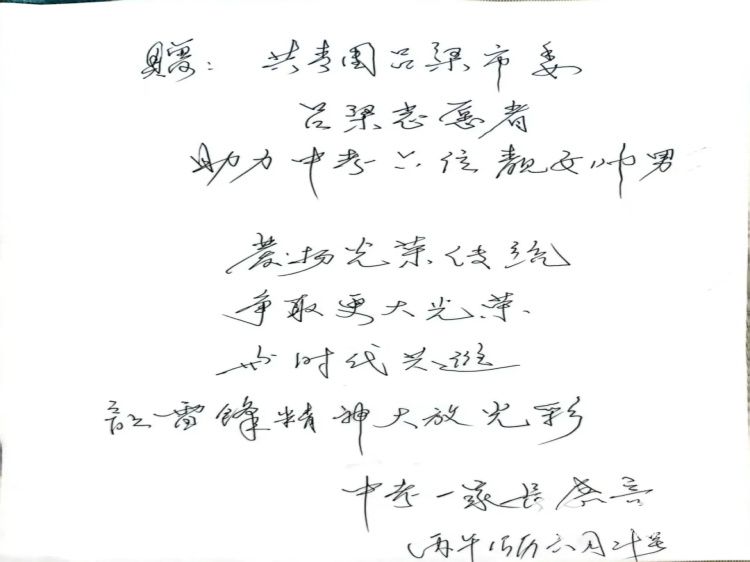 赠：共青团吕梁市委
吕梁志愿者
助力中考六位靓女帅男
发扬光荣传统
争取更大光荣
与时代共进
让雷锋精神大放光彩
中考一家长
丙午 六月廿号